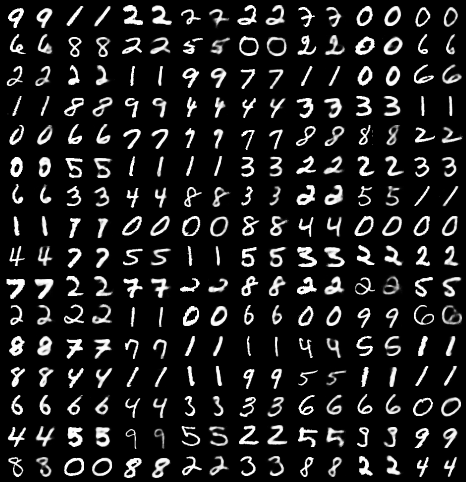 9 9 1 1 2 2 7 7 2 2 7 7 0 0 0 0
6 6 8 8 2 2 5 5 0 0 2 2 0 0 6 6
2 2 2 2 1 1 9 9 7 7 1 1 0 0 6 6
1 1 8 8 9 9 4 4 4 4 3 3 3 3 1 1
0 0 6 6 7 7 9 9 7 7 8 8 8 8 2 2
0 0 5 5 1 1 1 1 3 3 2 2 2 2 3 3
6 6 3 3 4 4 8 8 3 3 2 2 5 5 1 1
1 1 7 7 0 0 0 0 8 8 4 4 0 0 0 0
4 4 7 7 5 5 1 1 5 5 3 3 2 2 2 2
7 7 2 2 7 7 2 2 8 8 2 2 2 2 5 5
2 2 2 2 1 1 0 0 6 6 0 0 9 9 6 6
8 8 7 7 7 7 1 1 1 1 4 4 5 5 1 1
8 8 4 4 1 1 1 1 9 9 5 5 1 1 1 1
6 6 6 6 4 4 3 3 3 3 6 6 6 6 0 0
4 4 5 5 9 9 5 5 2 2 5 5 3 3 9 9
8 3 0 0 8 8 2 2 3 3 8 8 2 2 4 4